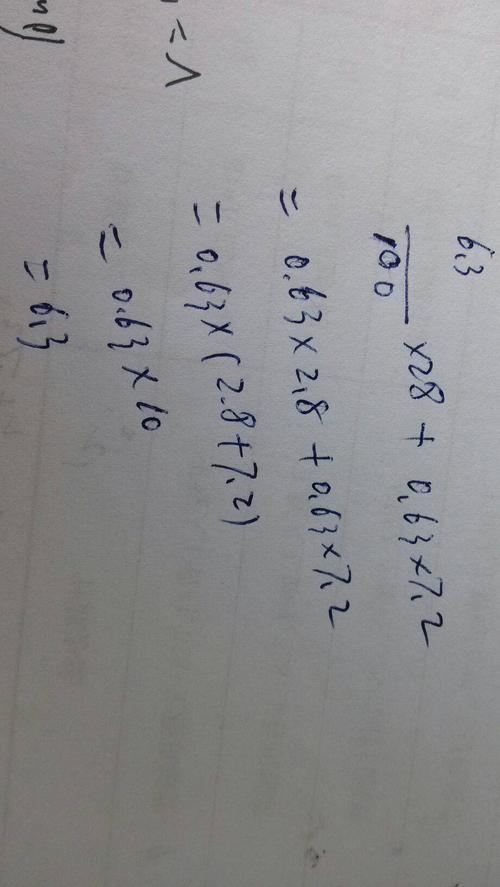 = 1
6.3/100 ×28 + 0.63×7.2
= 0.63×2.8 + 0.63×7.2
= 0.63×(2.8+7.2)
= 0.63×10
= 6.3